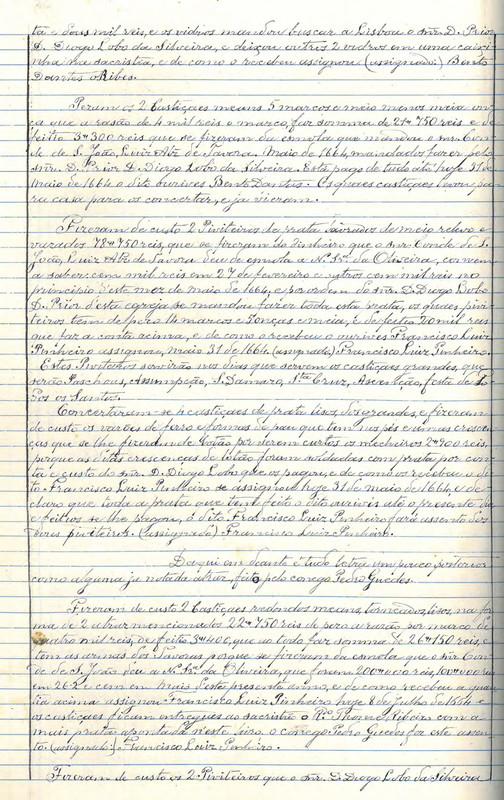 ta e dous mil reis, e os vidros mandou buscar a Lisboa o snr. D. Prior
D. Diogo Lobo da Silveira, e deixou outros 2 vidros em uma caixi-
nha na sacristia, e de como o recebeu assignou (assignado) Bento
Dantas Ribes.
Pezam os 2 Castiçaes means 5 marcos e meio menos meia on-
ça que a rasão de 4 mil reis o marco faz somma de 21$750 reis e de
feitio 3$300 reis que se fizeram da esmola que mandou o snr. Con-
de de S. João, Luiz Alz de Tavora. Maio de 1664, mandados fazer pelo
snr. D. Prior D. Diogo Lobo da Silveira. Está pago de tudo até hoje 31 de
Maio de 1664 o dito ourives Bento Dantas. Os quaes castiçaes levou pa-
ra casa para os concertar, e já vieram.
Fizeram de custo 2 Piviteiros de prata lavrados de meio relevo e
varados 78$750 reis, que se fizeram do dinheiro que o snr. Conde de S.
João, Luiz Alz de Tavora deu de esmola a N. Sra. da Oliveira, convem
a saber: cem mil reis em 27 de fevereiro e outros cem mil reis no
principio d'este mez de maio de 1664, e por ordem do snr. D. Diogo Lobo
D. Prior d'esta egreja se mandou fazer toda esta prata, os quaes pivi-
teiros tem de pezo 14 marcos e 5 onças e meia, e de feitio 20 mil reis
que faz a conta acima, e de como o recebeu o ourives Francisco Luiz
Pinheiro assignou, maio 31 de 1664. (assignado) Francisco Luiz Pinheiro.
Estes Piviteiros servirão nos dias que servem os castiçaes grandes, que
serão Paschoas, Assumpção, S. Damazo, Sta Cruz, Ascenção, festa de To-
dos os Santos.
Concertaram-se 4 castiçaes de prata lisos, dos grandes, e fizeram
de custo os varões de ferro e formas de pau que tem nos pés e umas crescen-
ças que se lhe fizeram de latão por serem curtos os mecheiros 2$900 reis,
porque as ditas crescenças de latão foram soldadas com prata por con-
ta e custo do snr. D. Diogo Lobo que os pagou, e de como os recebeu o di-
to Francisco Luiz Pinheiro se assignou hoje 31 de maio de 1664, e de-
claro que toda a prata que tem feito o dito ourives até o presente dia
e feitios se lhe pagou, o dito Francisco Luiz Pinheiro fará assento dos
dous piviteiros. (assignado) Francisco Luiz Pinheiro.
Daqui em deante é tudo letra um pouco posterior
como alguma já notada atraz, feita pelo conego Pedro Guedes.
Fizeram de custo 2 Castiçaes redondos means, torneados, lisos, na for-
ma de 2 atraz mencionados 22$750 reis de pezo a rasão por marco de
quatro mil reis, de feitio 3$400, que ao todo faz somma de 26$150 reis, e
tem as armas dos Tavoras porque se fizeram da esmola que o snr. Con-
de de S. João deu a N. Sra. da Oliveira, que foram 200$000 reis, 100$000 reis
em 2 e cem em maio d'este presente anno, e de como recebeu a quan-
tia acima assignou Francisco Luiz Pinheiro hoje 8 de julho de 1664 e
os castiçaes ficam entregues ao sacristão o Re. Thomé Ribeiro com a
mais prata apontada n'este livro. o conego Pedro Guedes fez este assen-
to. (assignado) Francisco Luiz Pinheiro.
Fizeram de custo os 2 Piviteiros que o snr. D. Diogo Lobo da Silveira